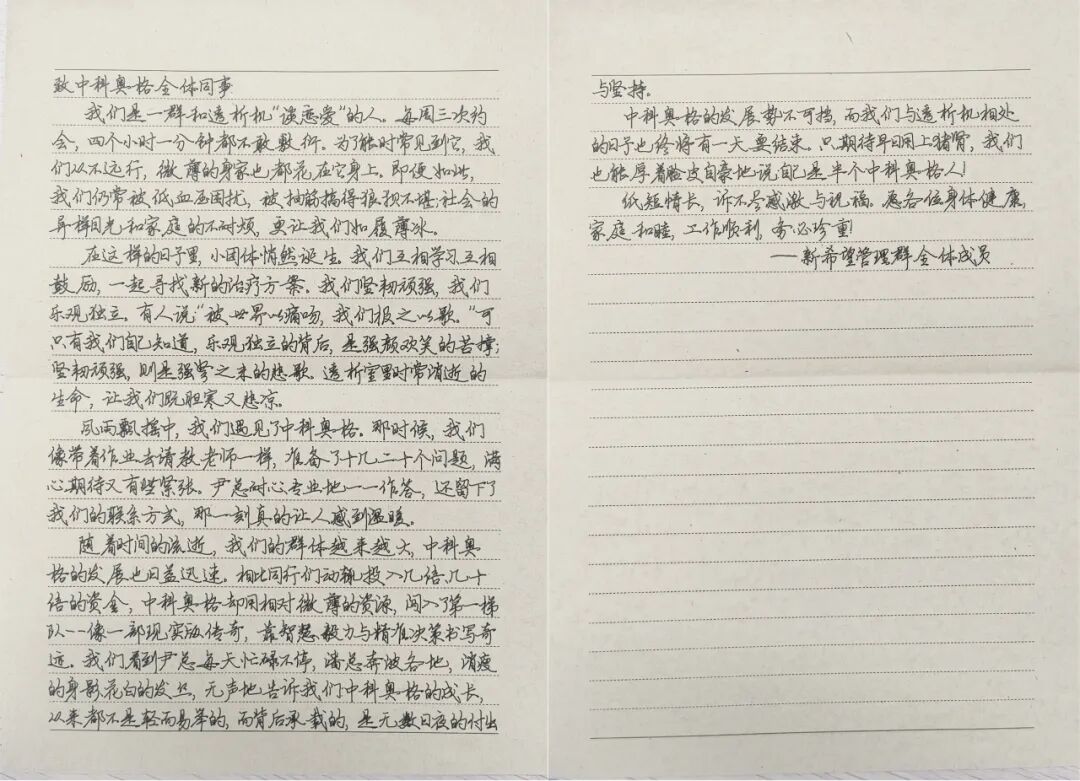 致中科奥格全体同事
我们是一群和透析机“谈恋爱”的人。每周三次约
会，四个小时一分钟都不敢敷衍。为了能时常见到它，我
们从不远行，微薄的身家也都花在它身上。即便如此，
我们仍常被低血压困扰，被抽筋搞得狼狈不堪；社会的
异样目光和家庭的不耐烦，更让我们如履薄冰。
在这样的日子里，小团体悄然诞生。我们互相学习互相
鼓励，一起寻找新的治疗方案。我们坚韧顽强，我们
乐观独立。有人说“被世界以痛吻，我们报之以歌。”可
只有我们自己知道，乐观独立的背后，是强颜欢笑的苦撑；
坚韧顽强，则是强学之来的悲歌。透析室里时常消逝的
生命，让我们既胆寒又悲凉。
风雨飘摇中，我们遇见了中科奥格。那时候，我们
像带着作业去请教老师一样，准备了十几二十个问题，满
心期待又有些紧张。尹总耐心专业地一一作答，还留下了
我们的联系方式，那一刻真的让人感到温暖。
随着时间的流逝，我们的群体越来越大，中科奥
格的发展也日益迅速。相比同行们动辄投入几倍几十
倍的资金，中科奥格却用相对微薄的资源，闯入了第一梯
队--像一部现实版传奇，靠智慧毅力与精准决策书写奇
迹。我们看到尹总每天忙碌不停，潘总奔波各地，消瘦
的身影花白的发丝，无声地告诉我们中科奥格的成长，
从来都不是轻而易举的，而背后承载的，是无数日夜的付出
与坚持。
中科奥格的发展势不可挡，而我们与透析机相处
的日子也终将有一天要结束。只期待早日用上猪肾，我们
也能厚着脸皮自豪地说自己是半个中科奥格人！
纸短情长，诉不尽感激与祝福。愿各位身体健康，
家庭和睦，工作顺利，务必珍重！
——新希望管理群全体成员